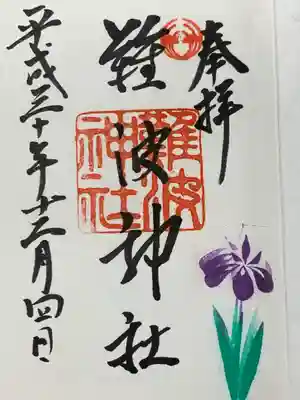 奉拝
難波神社
難波
神社
平成三十年十二月四日